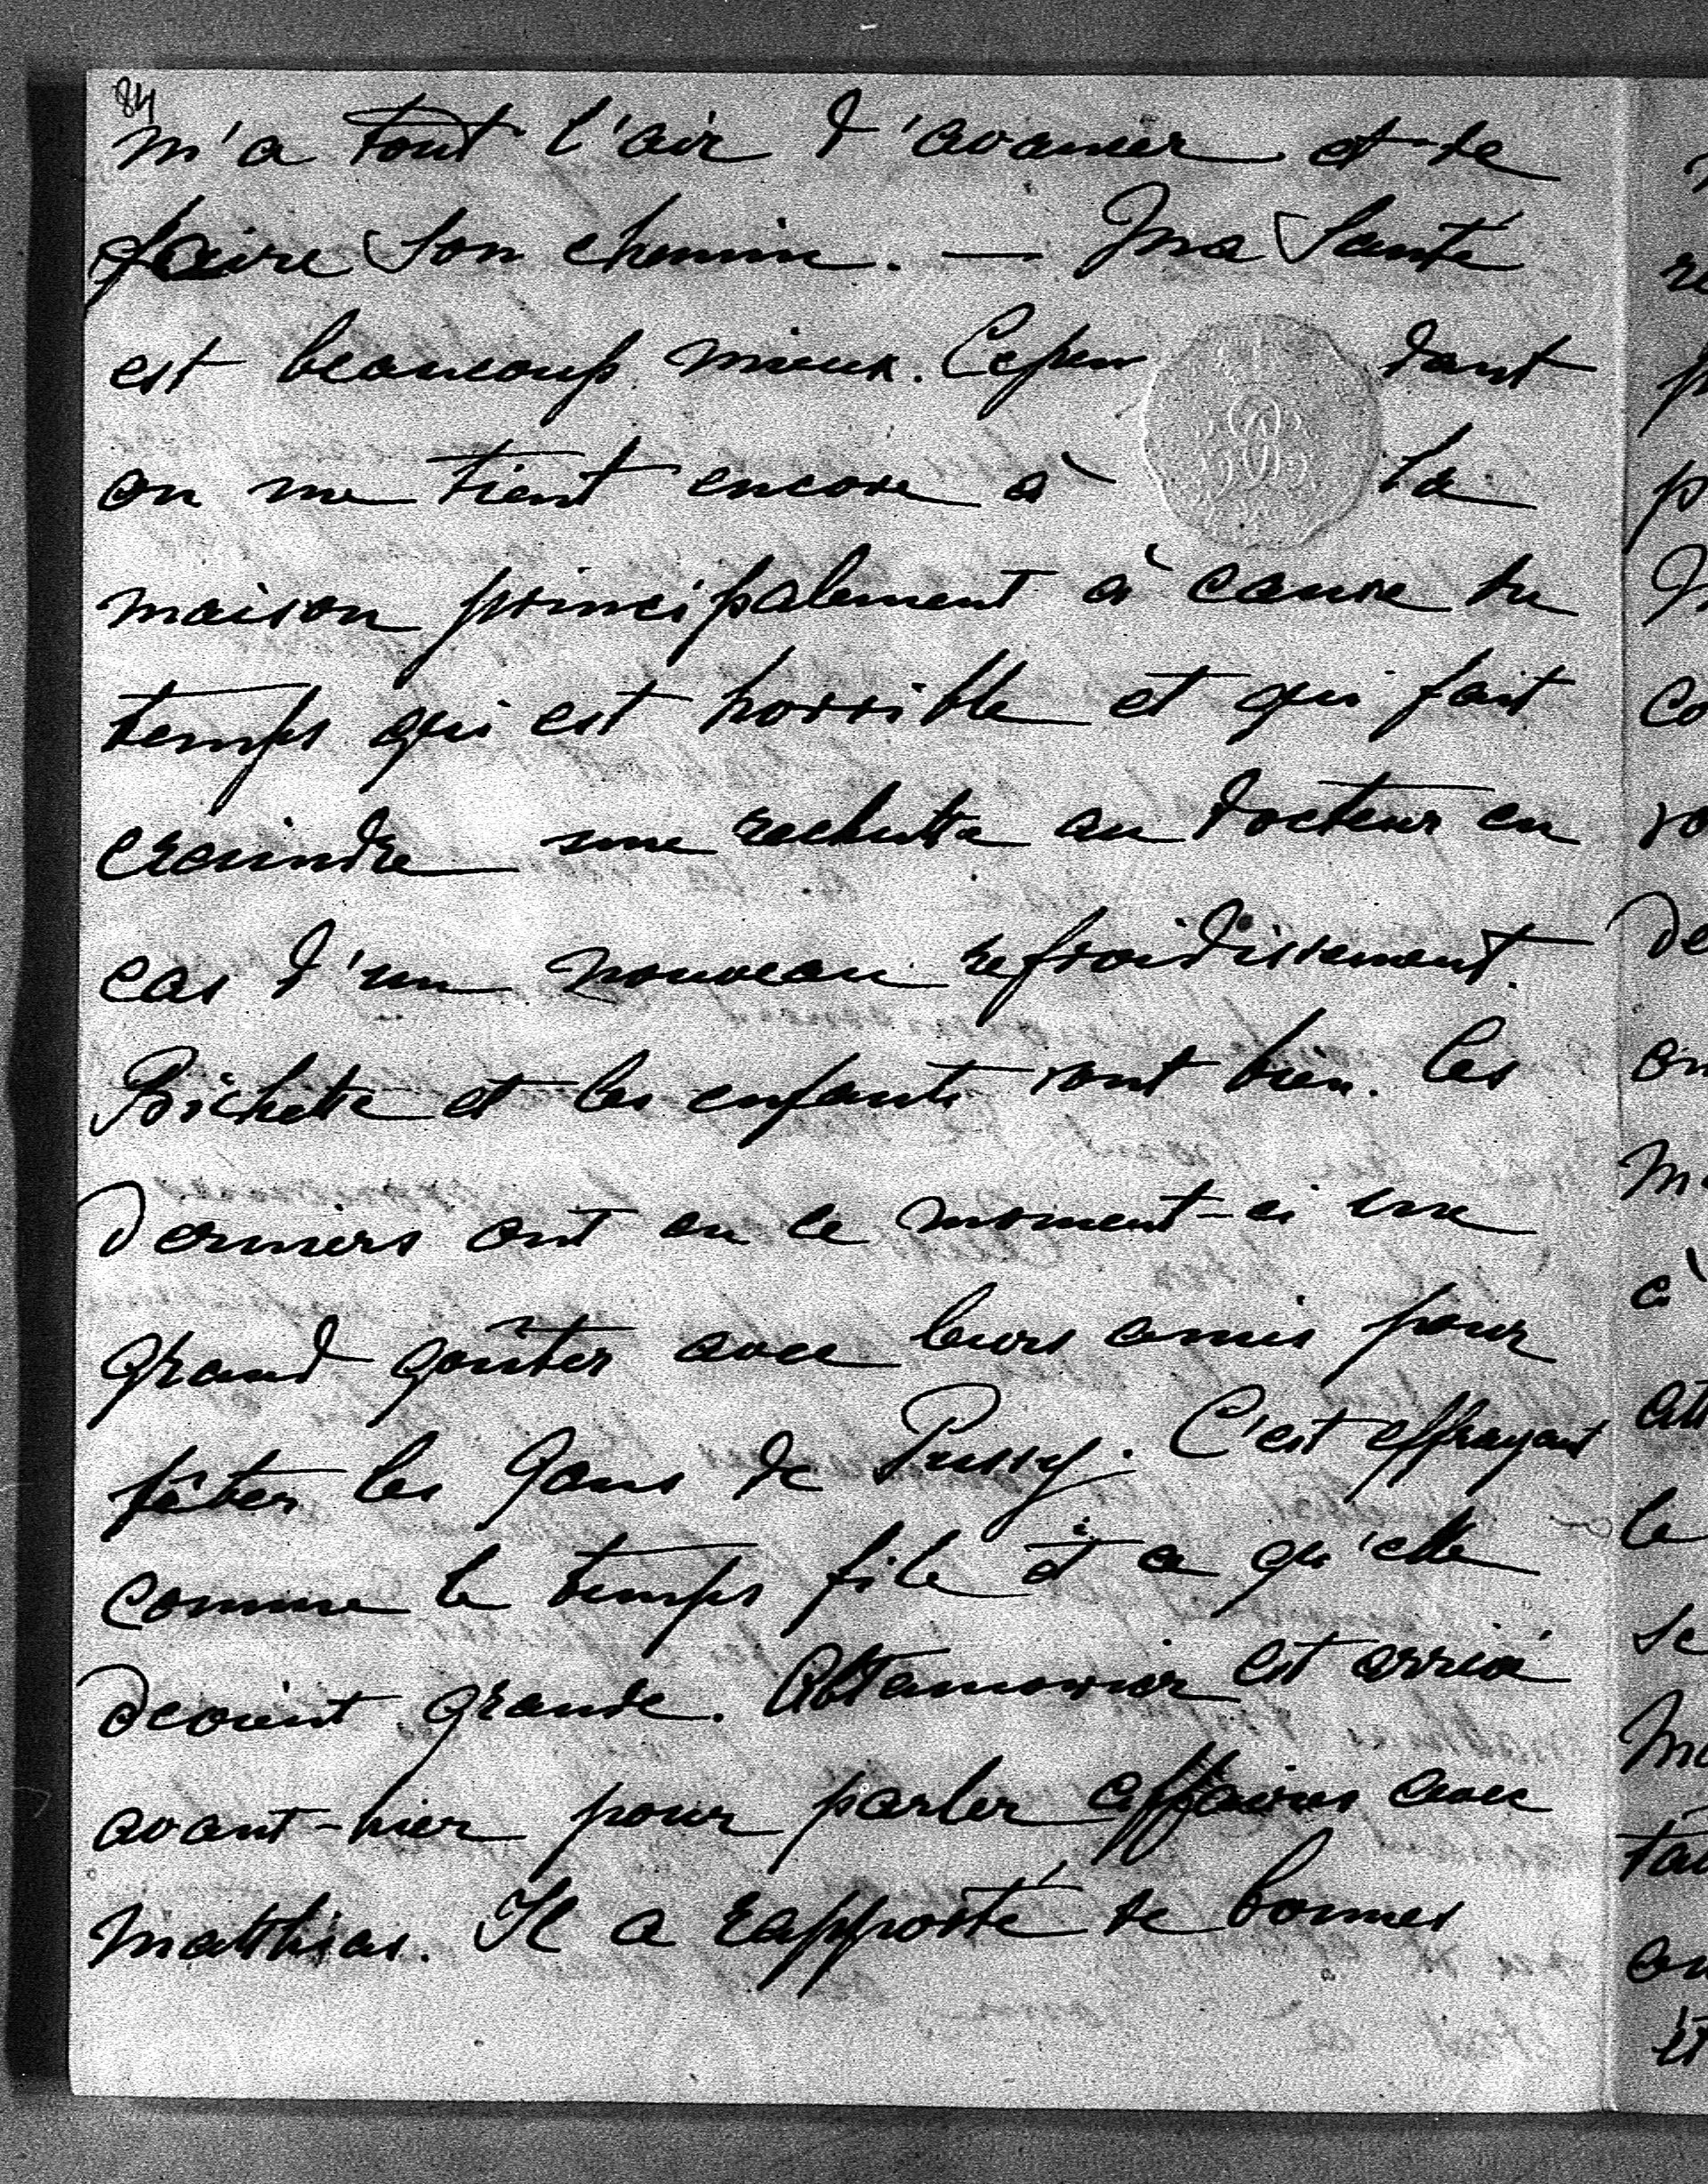 84
m'a tout l'air d'avancer et de
faire son chemin. — Ma santé
est beaucoup mieux. Cepen dant
on me tient encore à la
maison principalement à cause du
temps qui est horrible et qui fait
craindre une rechute au docteur en
cas d'un nouveau refroidissement.
Bichette et les enfants vont bien. Les
derniers ont en ce moment-ci une
grand goûter avec leurs amis pour
fêter les 9 ans de Pussy. C'est effrayant
comme le temps file et ce qu'elle
devient grande. est arrivé
avant-hier pour parler affaires avec
Matthias. Il a rapporté de bonnes